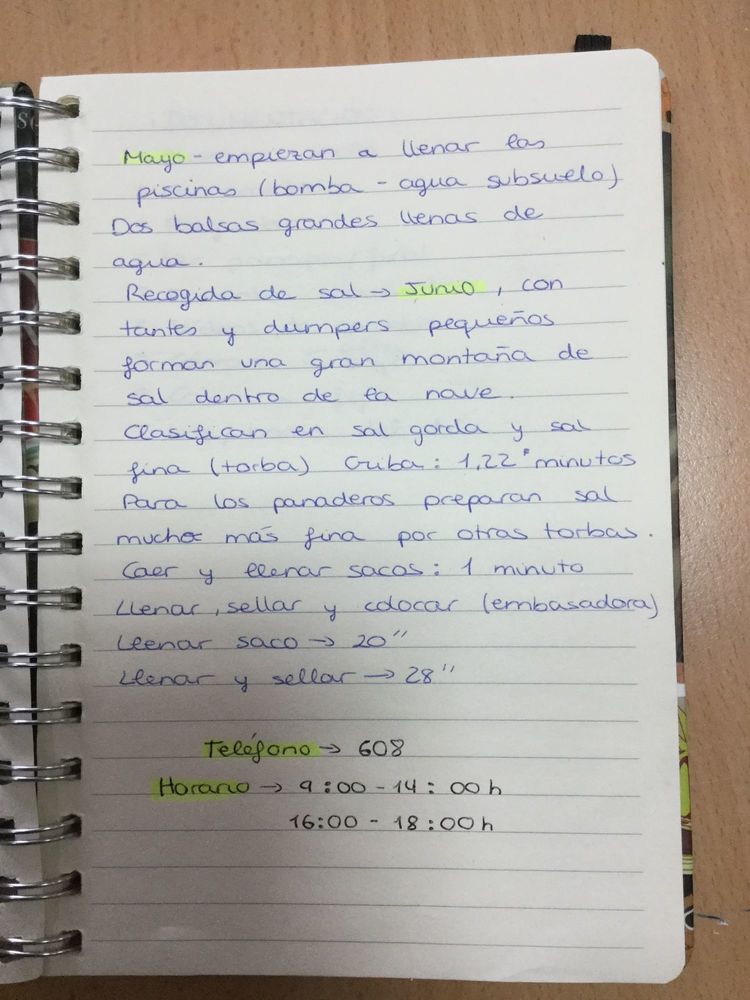 Mayo - empiezan a llenar las
piscinas (bomba - agua subsuelo)
Dos balsas grandes llenas de
agua.
Recogida de sal → Junio, con
tantes y dumpers pequeños
forman una gran montaña de
sal dentro de la nave.
Clasifican en sal gorda y sal
fina (torba) Criba: 1,22" minutos
Para los panaderos preparan sal
mucho más fina por otras torbas.
Caer y llenar sacos: 1 minuto
Llenar, sellar y colocar (embasadora)
Llenar saco → 20''
Llenar y sellar → 28''
Teléfono → 608
Horario → 9:00 - 14:00 h
16:00 - 18:00 h